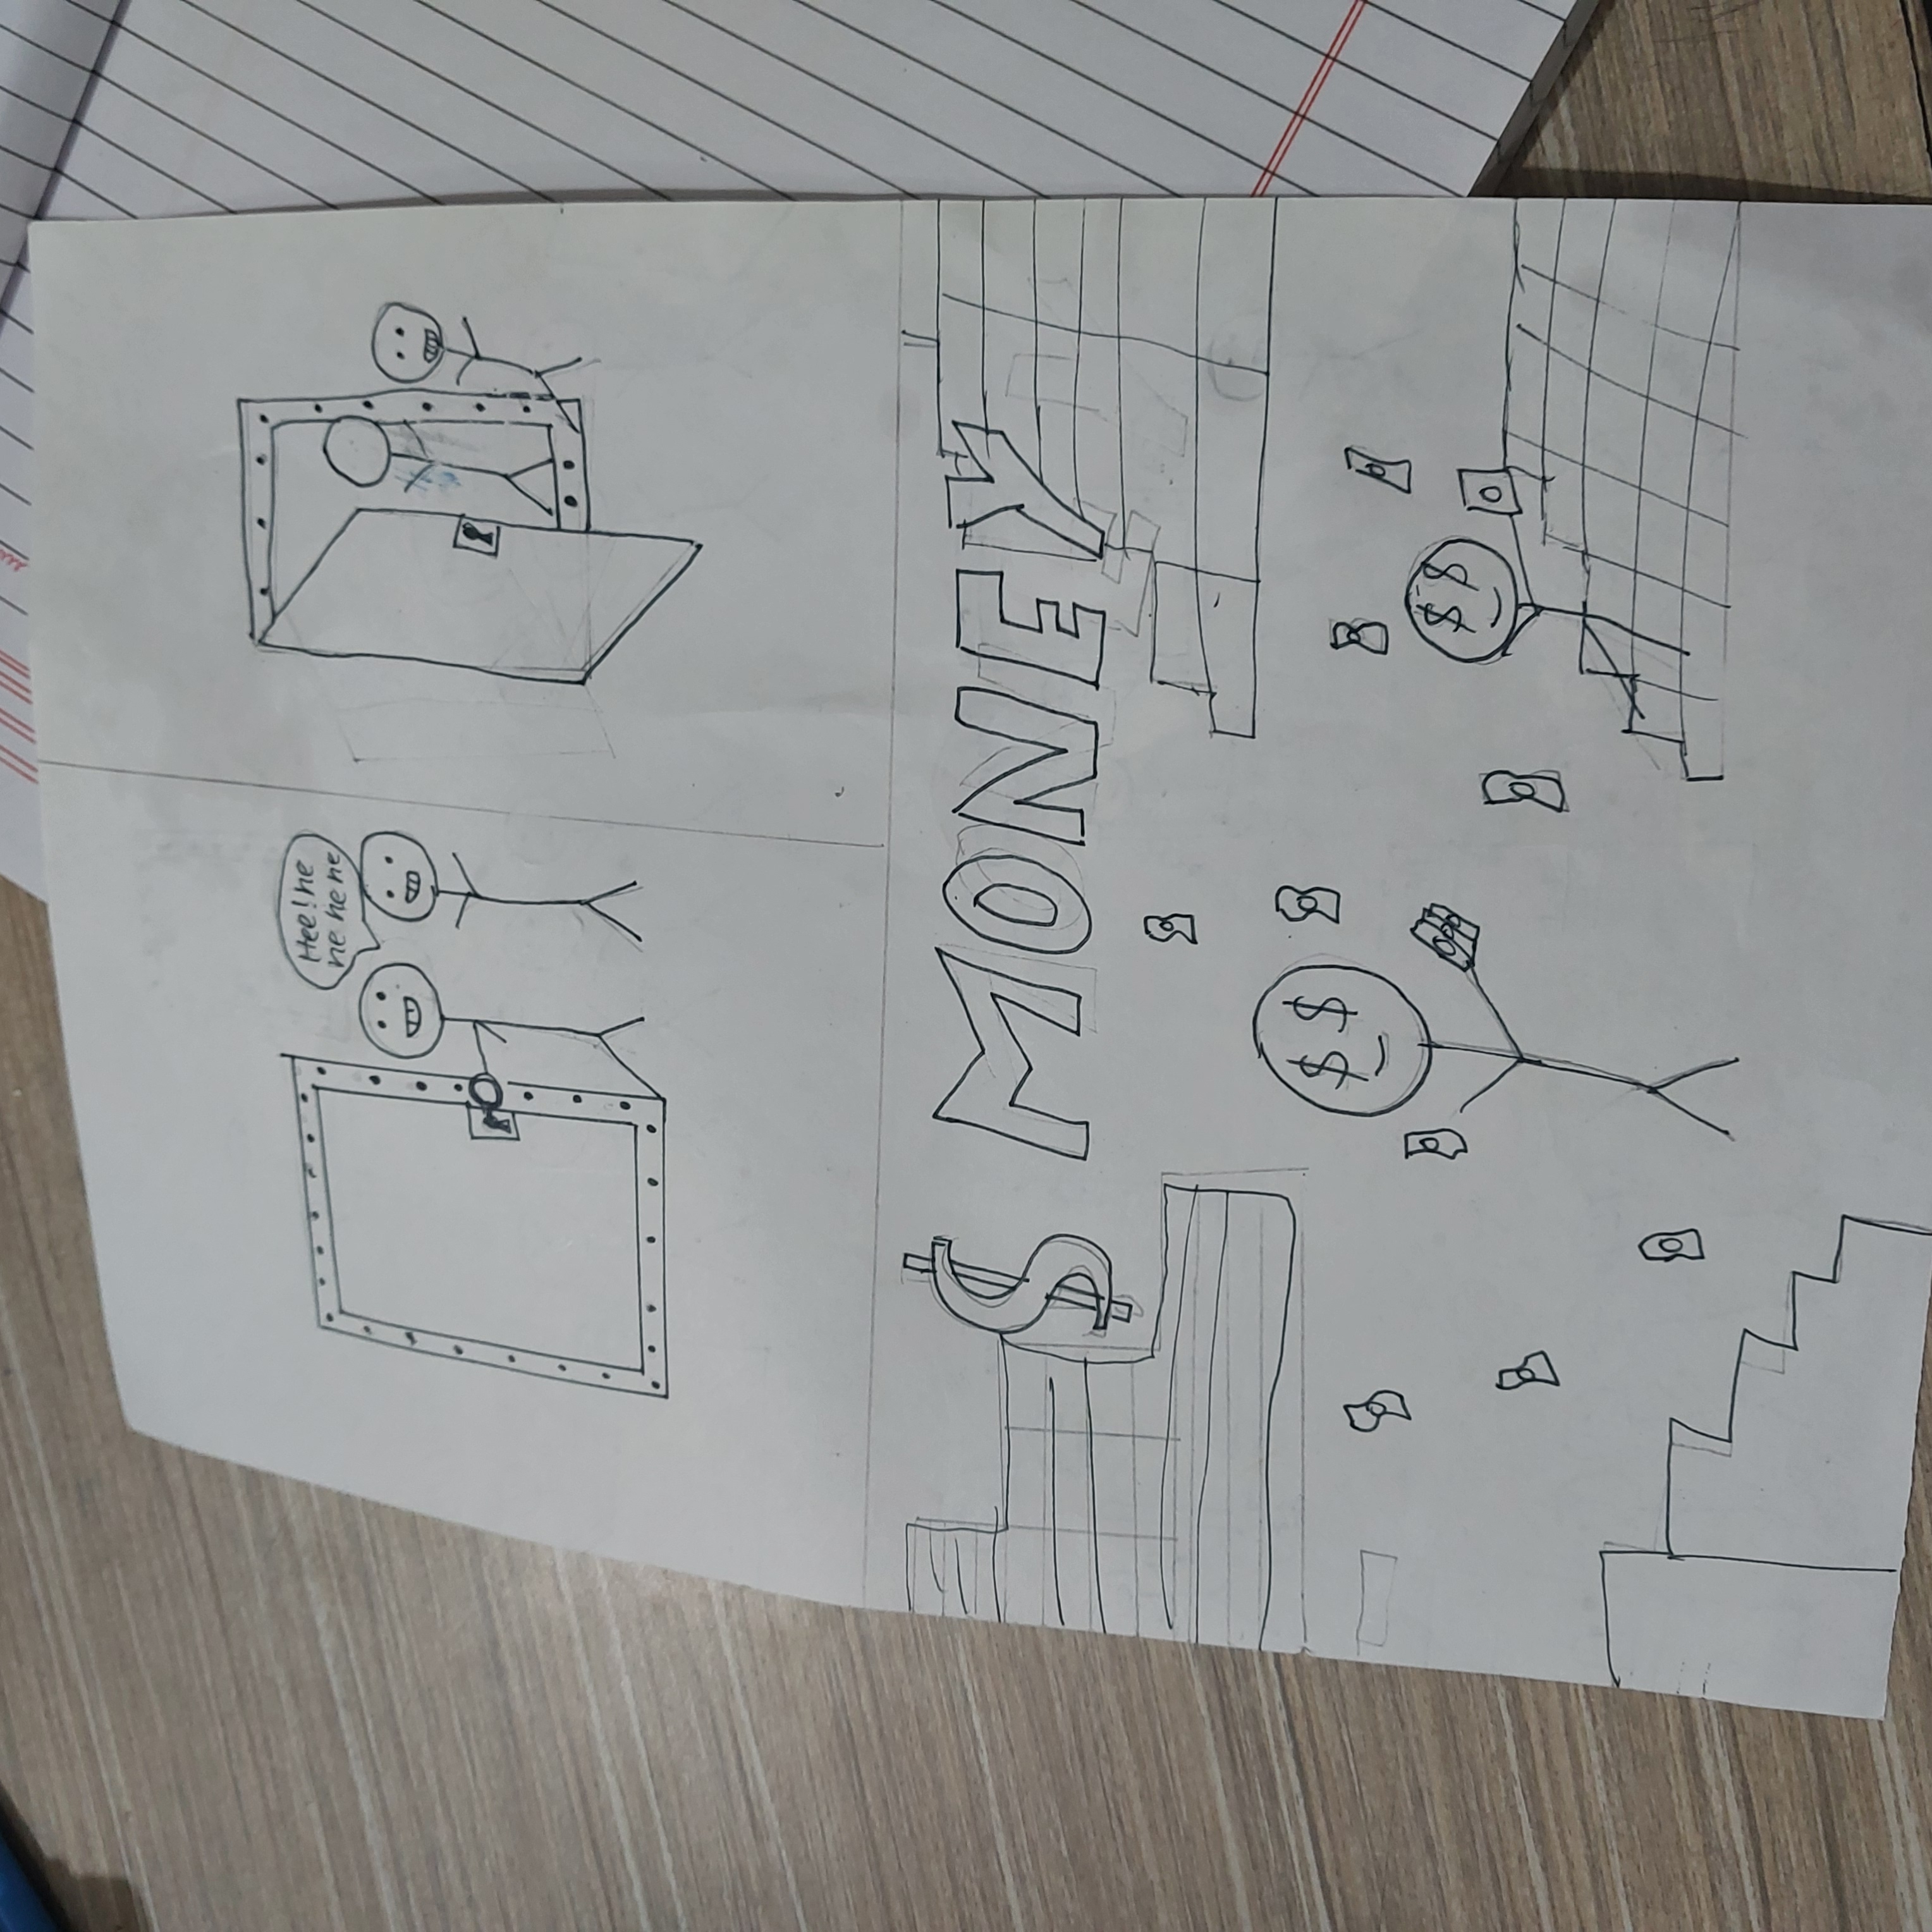 Hee! he
he he he
$ MONEY
$ $
$ $